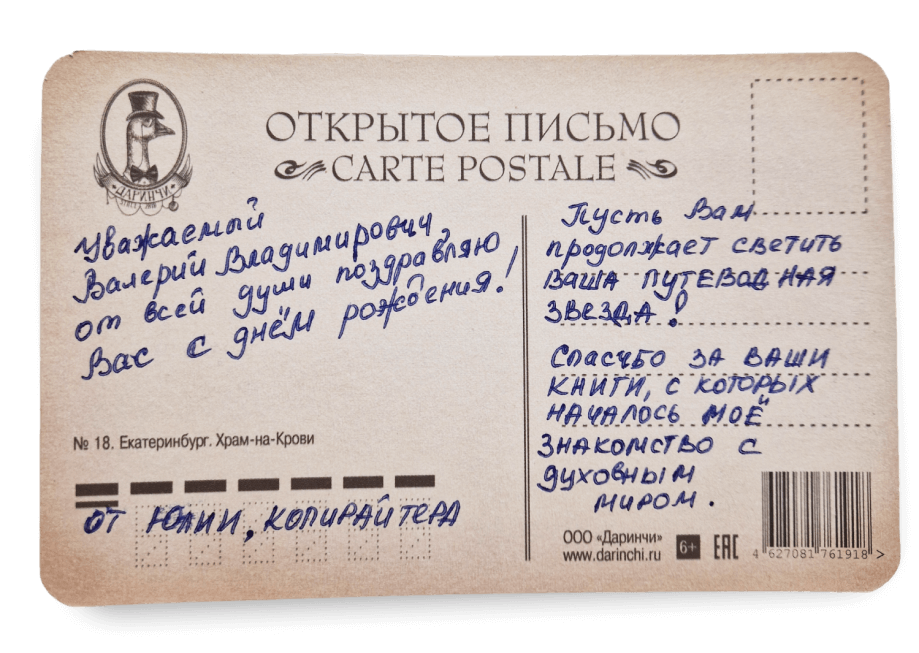 ДАРИНЧИ
ОТКРЫТОЕ ПИСЬМО
CARTE POSTALE
Уважаемый
Валерий Владимирович,
от всей души поздравляю
Вас с днём рождения!
№ 18. Екатеринбург. Храм-на-Крови
ОТ ЮЛИИ, КОПИРАЙТЕРА
Пусть Вам
продолжает светить
ВАША ПУТЕВОДНАЯ
ЗВЕЗДА!
Спасибо ЗА ВАШИ
КНИГИ, С КОТОРЫХ
НАЧАЛОСЬ МОЁ
ЗНАКОМСТВО С
духовным
миром.
ООО «Даринчи»
www.darinchi.ru
6+ EAC
4 627081 761918 >